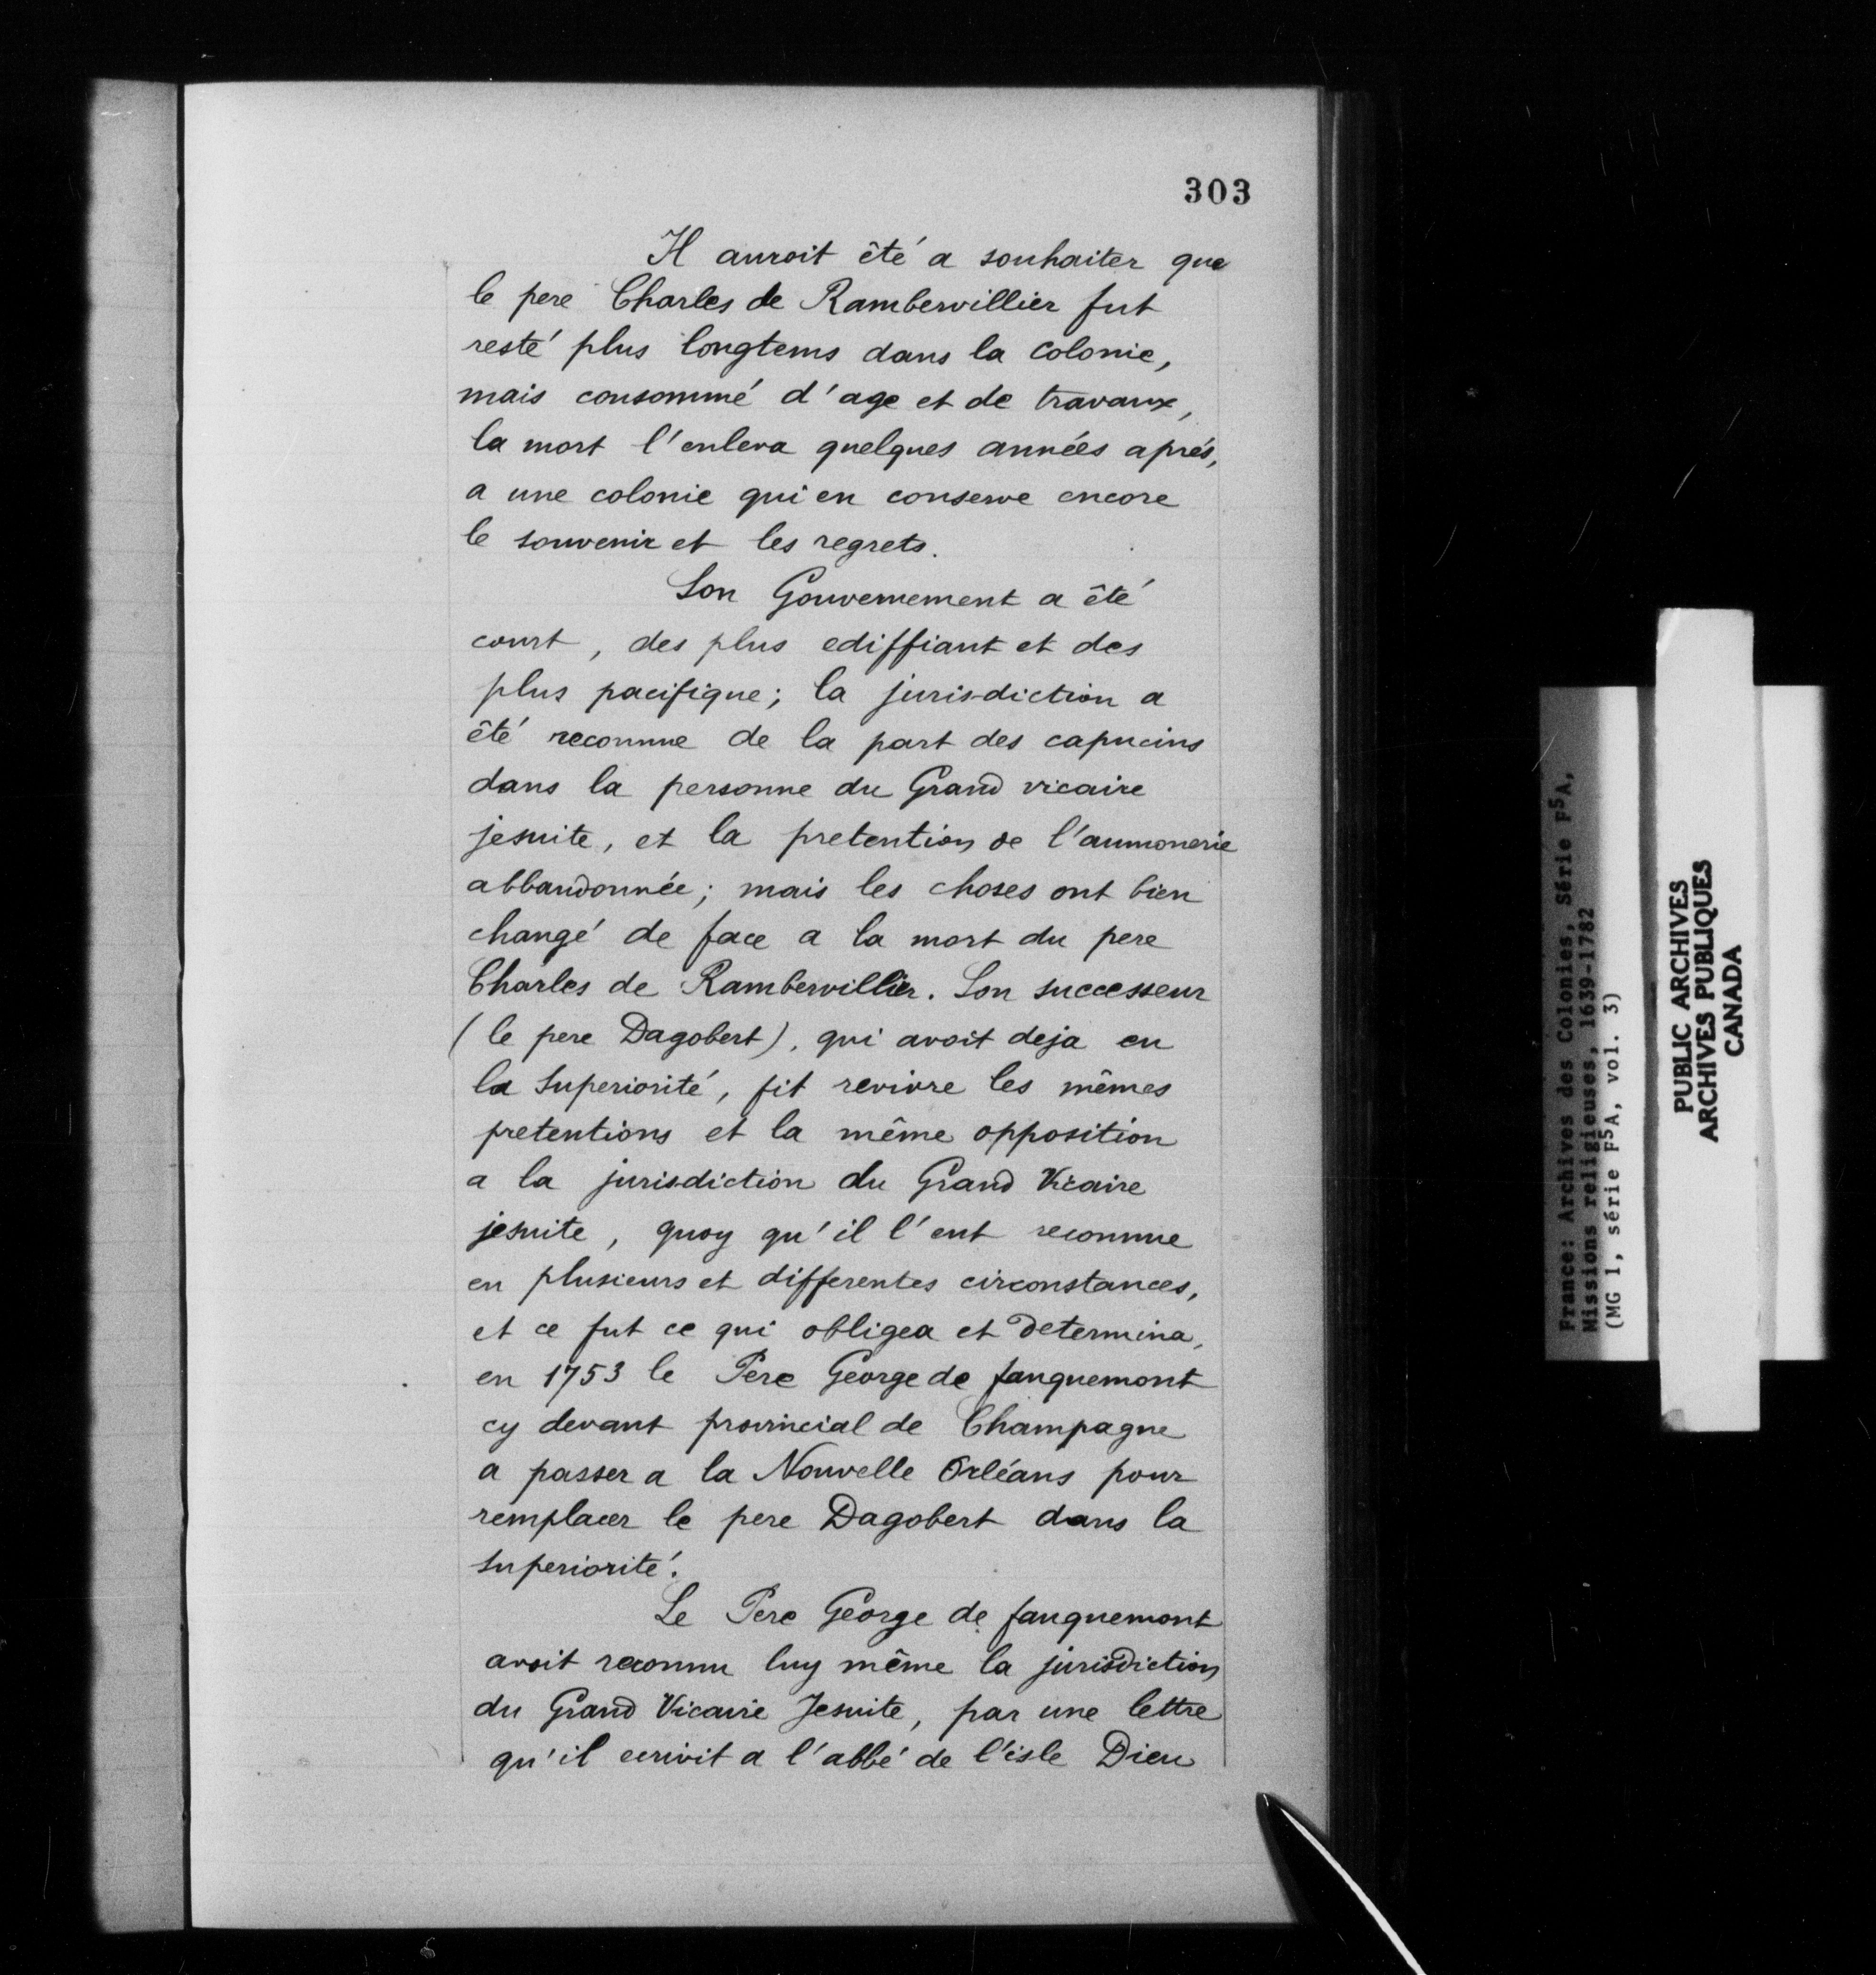 303
Il auroit êté a souhaiter que
le pere Charles de Rambervillier fut
resté plus longtems dans la colonie,
mais consommé d'age et de travaux,
la mort l'enleva quelques années aprés,
a une colonie qui en conserve encore
le souvenir et les regrets.
Son Gouvernement a êté
court, des plus ediffiant et des
plus pacifique; la jurisdiction a
êté reconnue de la part des capucins
dans la personne du Grand vicaire
jesuite, et la pretention de l'aumonerie
abbandonnée; mais les choses ont bien
changé de face a la mort du pere
Charles de Rambervillier. Son successeur
(le pere Dagobert), qui avoit deja eu
la Superiorité, fit revivre les mêmes
pretentions et la même opposition
a la jurisdiction du Grand Vicaire
jesuite, quoy qu'il l'eut reconnue
en plusieurs et differentes circonstances,
et ce fut ce qui obligea et determina,
en 1753 le Pere George de fauquemont
cy devant provincial de Champagne
a passer a la Nouvelle Orléans pour
remplacer le pere Dagobert dans la
superiorité.
Le Pere George de fauquemont
avoit reconnu luy même la jurisdiction
du Grand Vicaire Jesuite, par une lettre
qu'il ecrivit a l'abbé de l'isle Dieu
France: Archives des Colonies, Série F5A,
Missions religieuses, 1639-1782
(MG 1, série F5A, vol. 3)
PUBLIC ARCHIVES
ARCHIVES PUBLIQUES
CANADA